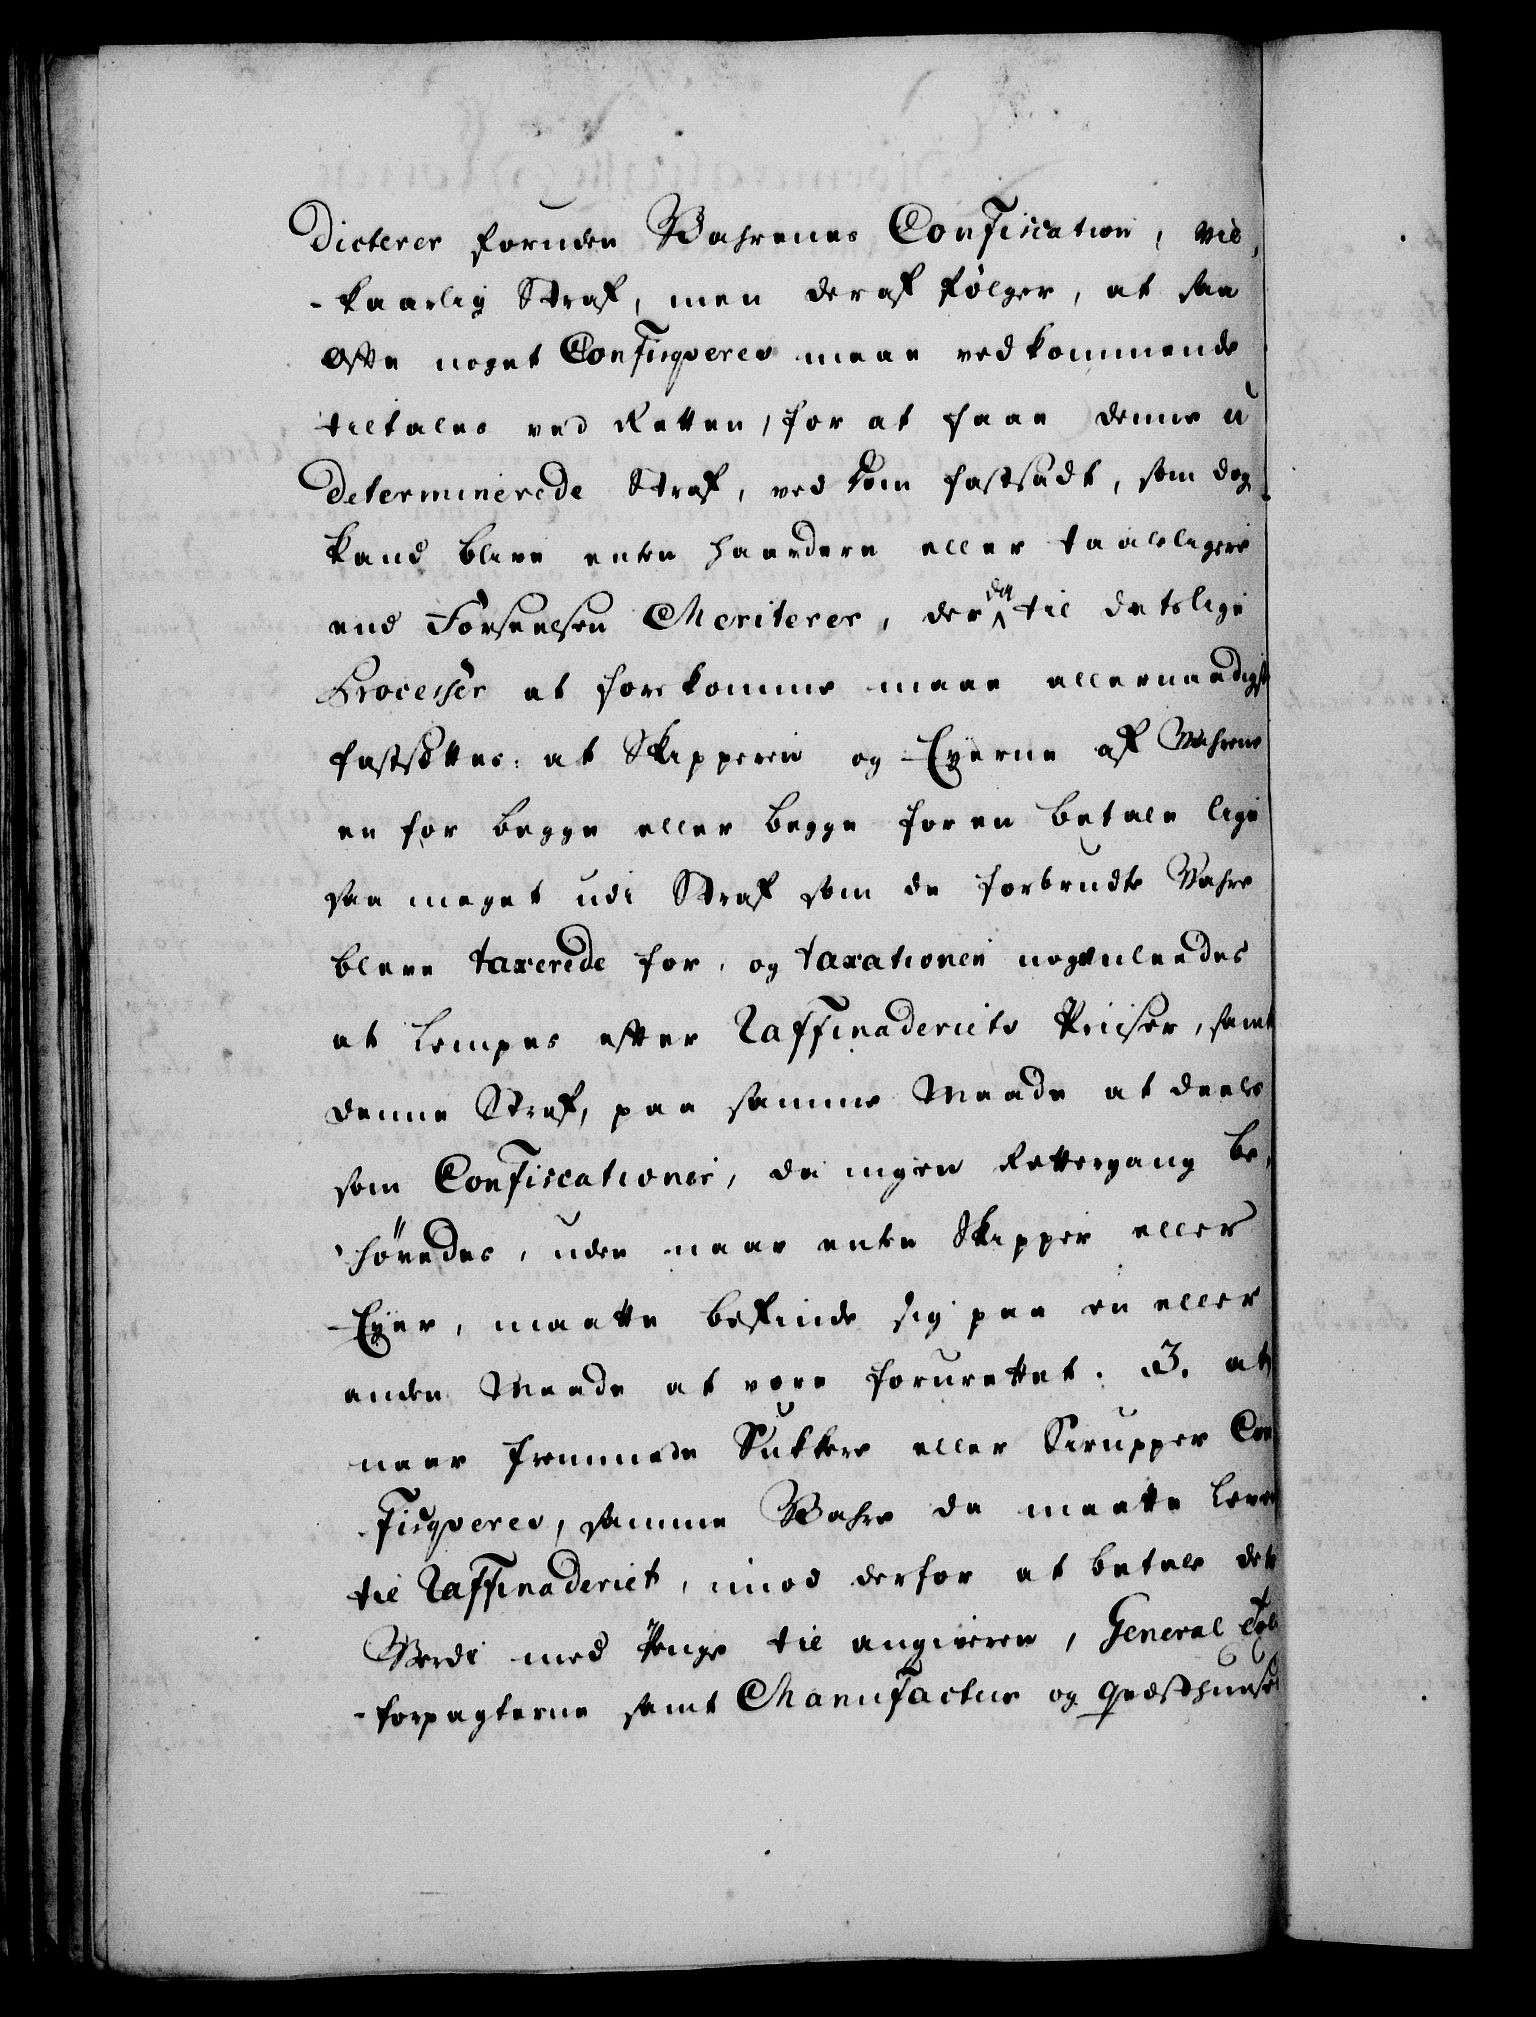 Dicterer foruden Wahrenes Confiscation, vil,
-kaarlig Straf, men deraf følger, at saa
ofte noget Confisqveres maae vedkommende
tiltales ved Retten, for at faae denne u
determinerede Straf, ved Dom fastsadt, som dog
kand blive enten haardere eller taaleligere
end Forseelsen Meriterer, der da til detslige
Processer at forekomme maae allernaadigst
fastsættes: at Skipperen og Eyerne af Wahrene
en for begge eller begge for en betale lige
saa meget udi Straf som de forbrudte Wahre
bleve taxerede for, og taxationen nogenleedes
at lempes efter Raffinaderiets Priiser, samt
denne Straf, paa samme Maade at deeles
som Confiscationer, da ingen Rettergang be,
høvedes, uden naar enten Skipper eller
Eyer, maatte befinde sig paa en eller
anden Maade at være forurettet. 3. at
naar fremmede Sukkere eller Sirupper Con
-fisqveres, samme Wahre da maatte lever
til Raffinaderiet, imod derfor at betale det
Werdi med Penge til angiveren, General Told
-forpagterne samt Manufactur og Giæsthuuset